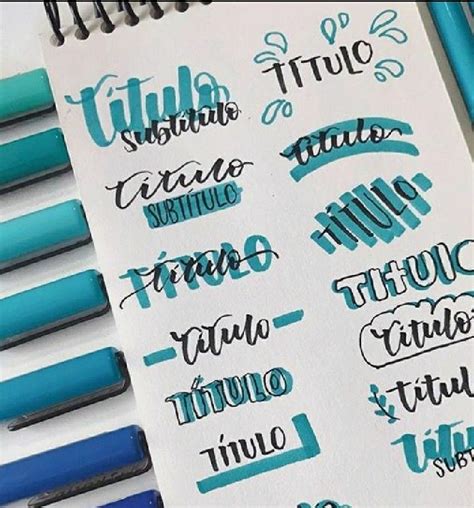 Título
Subtítulo
Título
SUBTÍTULO
TÍTULO
Título
Título
TÍTULO
TÍTULO
TÍTULO
Título
TÍTULO
TítULO
Título
título
Título
SUBT